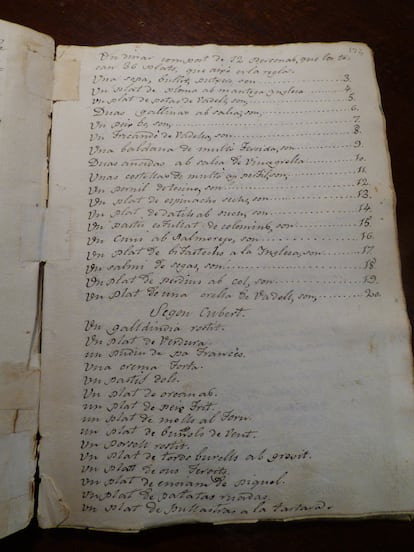 Un dinar comport de 12 personas, que los to-
can 36 plats, que axó es la regla.
Una sopa, bullit,
Un plat de ploma ab manteca Inglesa 4.
Un plat de potas de Vadell, son, 5.
Duas gallinas ab salsa, son, 6.
Un peix bo, son, 7.
Un Fricandó de Vadella, son 8.
Una baldana de multó Farcida, son 9.
Duas anadas ab salsa de Vinagrella 10.
Duas costellas de multó son 11.
Un pernil de tocino, son 12.
Un plat de espinachs sechs, son 13.
Un plat de datils ab suchs, son 14.
Un pastis estufat de colomins, son 15.
Un Cuni ab Salmorejo, son 16.
Un Plat de bistechs a la Inglesa, son 17
Un salmi de son 18
Un Plat de perdius ab col, son 19.
Un Plat de una orella de Vadell, son, 20.
Segon Cubert.
Un galldindia rostit.
Un Plat de Verdura.
un Pudin de pa Francés.
Una crema Torta.
Un pastis dols.
Un plat de
un plat de peix Frit.
un plat de molls al Forn.
Un plat de buñols de Vent.
Un porsell rostit.
Un plat de tords burells ab
Un Plat de ous
Un plat de enciam de
Un plat de patatas
Un plat de a la tartara